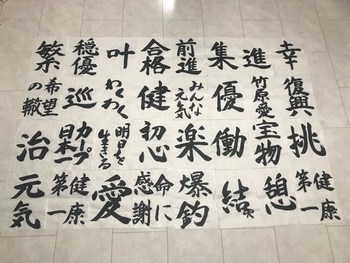 幸
進
集
前進
合格
叶
穏優
繁
復興
竹原愛
優
みんな
元気
健
わくわく
巡
希望
の轍
挑
宝物
働
楽
初心
明日を
生きる
カープ
日本一
治
健康
第一
憩
結
爆釣
命に
感謝
愛
健康
第一
元気